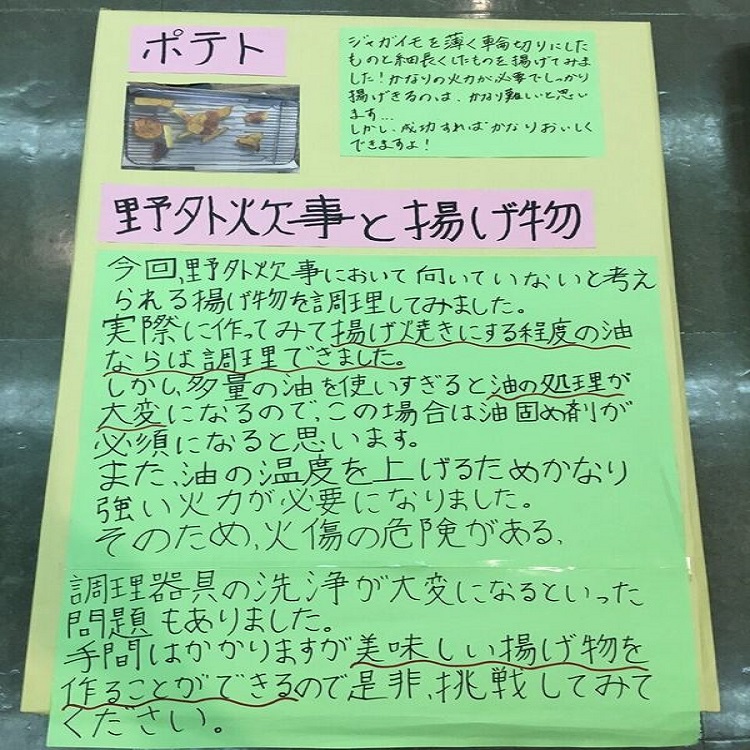 ポテト
ジャガイモを薄く輪切りにした
ものと細長くしたものを揚げてみま
した！かなりの火力が必要でしっかり
揚げきるのは、かなり難しいと思い
ます…
しかし、成功すればかなりおいしく
できますよ！
野外炊事と揚げ物
今回、野外炊事において向いていないと考え
られる揚げ物を調理してみました。
実際に作ってみて揚げ焼きにする程度の油
ならば調理できました。
しかし、多量の油を使いすぎると油の処理が
大変になるので、この場合は油固め剤が
必須になると思います。
また、油の温度を上げるためかなり
強い火力が必要になりました。
そのため、火傷の危険がある、
調理器具の洗浄が大変になるといった
問題もありました。
手間はかかりますが美味しい揚げ物を
作ることができるので是非、挑戦してみて
ください。